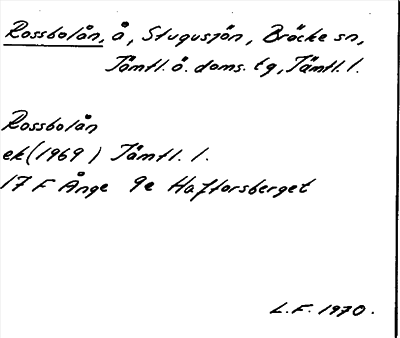 Rossbolån, å, Stugusjön, Bräcke sn,
Jämtl. ö. doms. tg, Jämtl. l.
Rossbolån
ek (1969) Jämtl. l.
17 F Ånge 9e Haftorsberget
L.F. 1970.